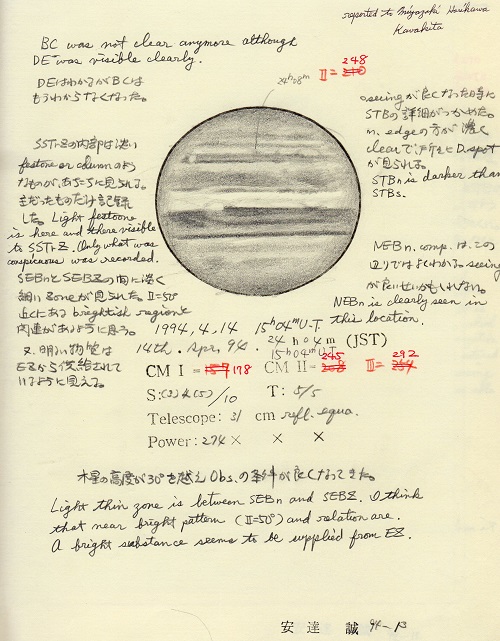 reported to Miyazaki Horikawa
Kawakita
BC was not clear anymore although
DE was visible clearly.
DEはわかるがBCは
もうわからなくなった。
248
II=
24h08m
SSTrZの内部は淡い
festoon or columnのよ
なものが、あちこちに見られる。
目だったものだけ記録
した。Light festoons
is here and there visible
to SSTrZ. Only what was
conspicuous was recorded.
SEBnとSEBZの間に淡く
細いzoneが見られた。II=50°
近にあるbrightish regionと
関連があるように思う。
又、明るい物質は
EZから供給されて
いるように見える。
seeingが良くなった時に
STBの詳細がつかめた。
n. edgeの方が濃く
clearで、所々にD.spot
が見られる。
STBn is darker than
STBs.
NEBn. comp. は、この
辺りではよくわかる。seeing
が良いせいかもしれない。
NEBn is clearly seen in
this location.
1994, 4, 14 15h04m U.T.
14th. Apr, 94. 24h04m (JST)
15h04m U.T
CM I = 178 CM II= 245 III= 292
S:(3)4(5)/10 T: 5/5
Telescope: 31 cm refl. equa.
Power: 274 × × ×
木星の高度が30°を越えObs.の条件が良くなってきた。
Light thin zone is between SEBn and SEBZ. I think
that near bright pattern (II=50°) and relation are.
A bright substance seems to be supplied from EZ.
安達 誠 94-13